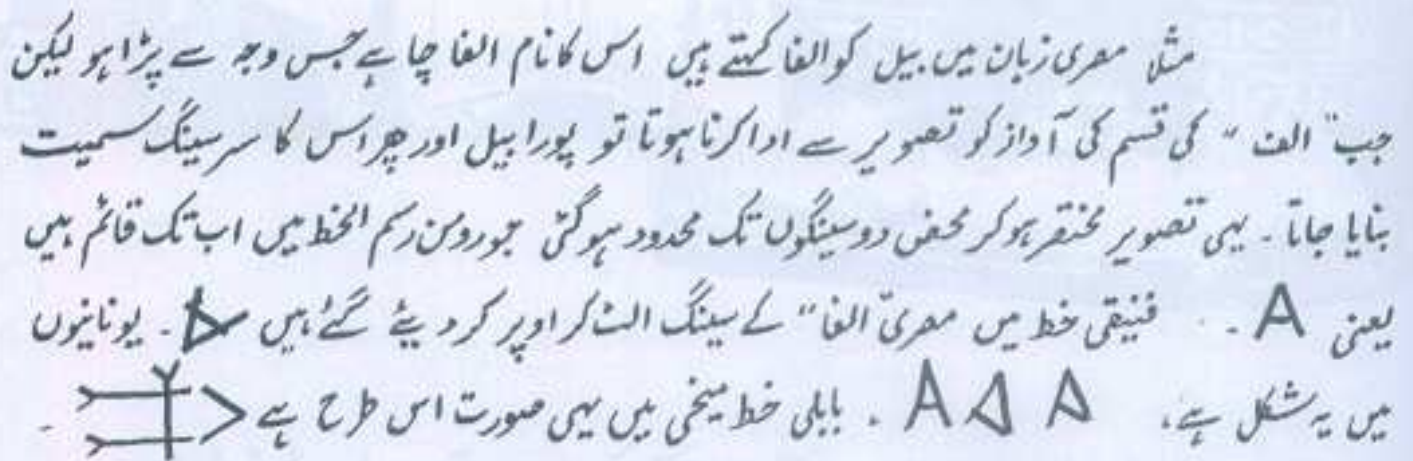 مثلاً مصری زبان میں بیل کو الفا کہتے ہیں اس کا نام الفا چاہے جس وجہ سے پڑا ہو لیکن
جب "الف" کی قسم کی آواز کو تصویر سے ادا کرنا ہوتا تو پورا بیل اور پھر اس کا سر سینگ سمیت
بنایا جاتا ۔ یہی تصویر مختصر ہو کر محض دو سینگوں تک محدود ہو گئی جو رومن رسم الخط میں اب تک قائم ہیں
یعنی A ۔ فنیقی خط میں مصری "الفا" کے سینگ الٹ کر اوپر کر دیئے گئے ہیں ۔ یونانیوں
میں یہ شکل ہے، A A A ۔ بابلی خط میخی میں یہی صورت اس طرح ہے ۔